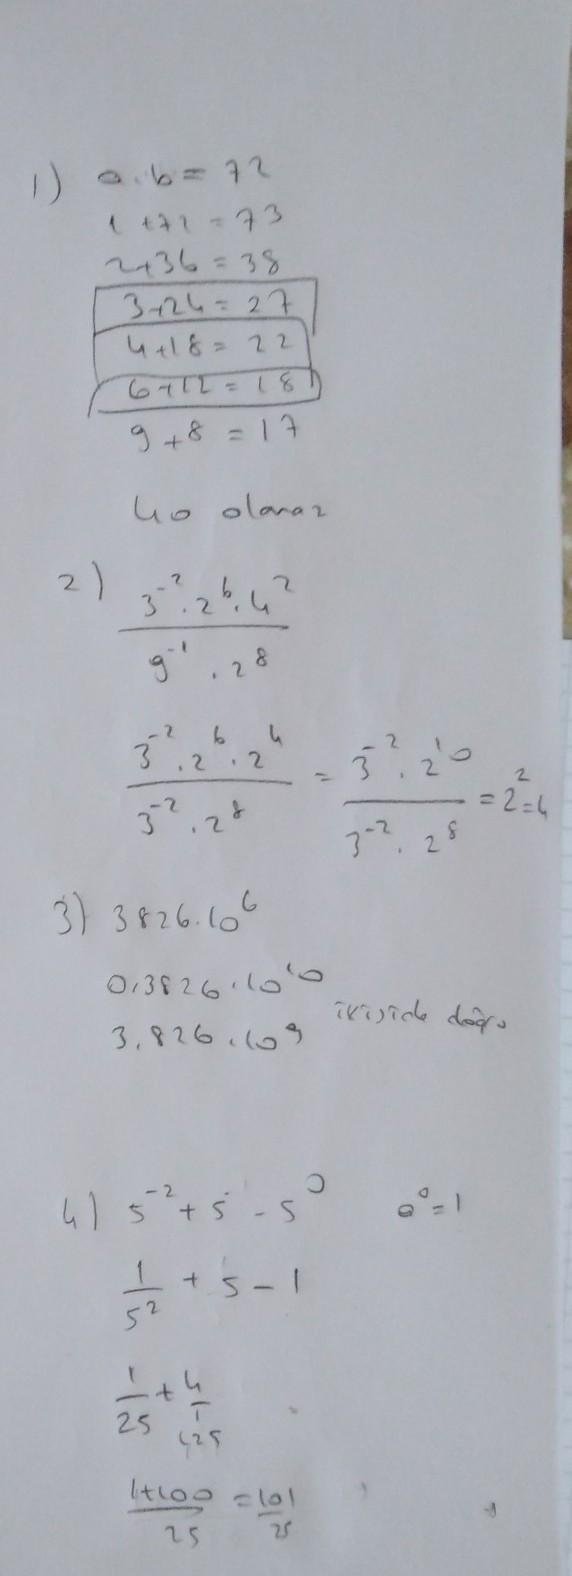 1) a.b = 72
1 + 72 = 73
2+36 = 38
3+24 = 27
4+18 = 22
6+12 = 18
9 + 8 = 17
40 olamaz
2) 3⁻² . 2⁶ . 4² / 9⁻¹ . 2⁸
3⁻² . 2⁶ . 2⁴ / 3⁻² . 2⁸ = 3⁻² . 2¹⁰ / 3⁻² . 2⁸ = 2² = 4
3) 3826.10⁶
0,3826.10¹⁰
3,826.10⁹ ikiside doğru
4) 5⁻² + 5 - 5⁰ a⁰ = 1
1/5² + 5 - 1
1/25 + 4/1
(25
1+100/25 = 101/25